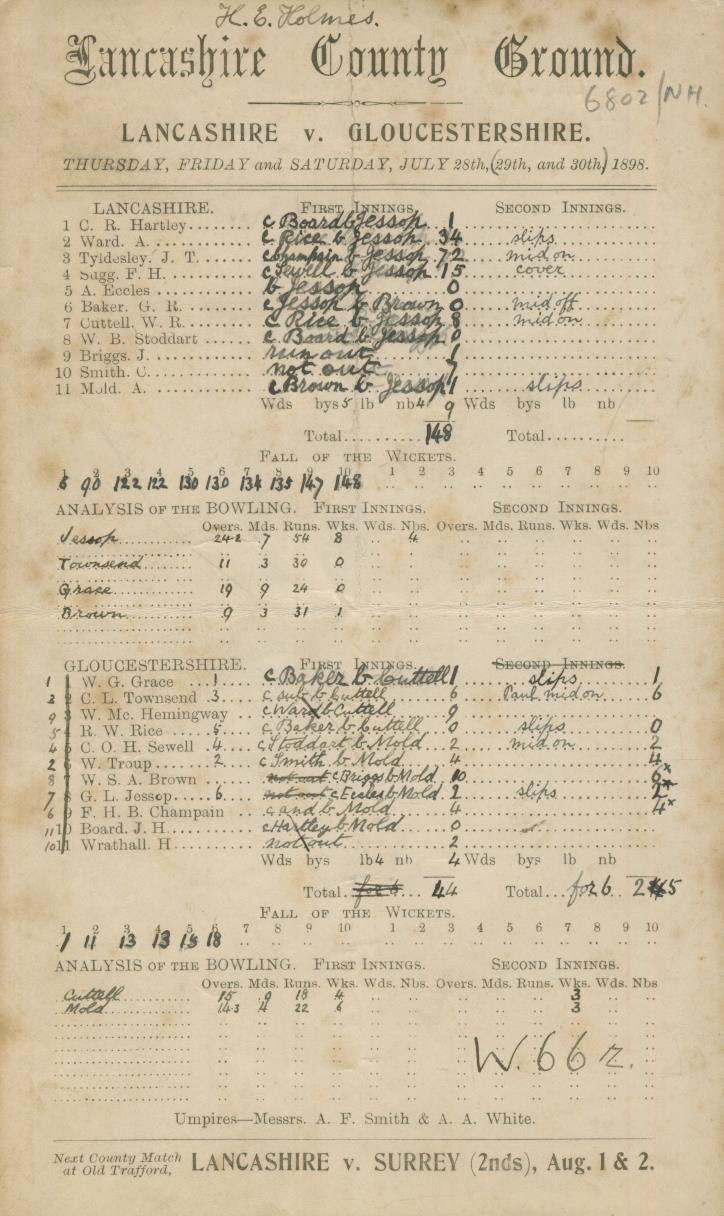 H. E. Holmes.
Lancashire County Ground.
6802/NH.
LANCASHIRE v. GLOUCESTERSHIRE.
THURSDAY, FRIDAY and SATURDAY, JULY 28th, (29th, and 30th) 1898.
LANCASHIRE. FIRST INNINGS. SECOND INNINGS.
1 C. R. Hartley........ c Board b Jessop 1
2 Ward. A. .......... c Rice b Jessop 34 slips
3 Tyldesley. J. T. ...... c Champain b Jessop 72 mid on
4 Sugg. F. H. .......... c Sewell b Jessop 15 cover
5 A. Eccles ............ b Jessop 0
6 Baker. G. R. ........ c Jessop b Brown 0 mid off
7 Cuttell. W. R......... c Rice b Jessop 8 mid on
8 W. B. Stoddart ...... c Board b Jessop 0
9 Briggs. J. ............ run out 1
10 Smith. C. ............ not out 7
11 Mold. A. ............ c Brown b Jessop 1 slips
Wds bys 5 lb nb 4 9 Wds bys lb nb
Total.......... 148 Total..........
FALL OF THE WICKETS.
1 2 3 4 5 6 7 8 9 10 1 2 3 4 5 6 7 8 9 10
6 90 122 122 130 130 134 135 147 148
ANALYSIS OF THE BOWLING. FIRST INNINGS. SECOND INNINGS.
Overs. Mds. Runs. Wks. Wds. Nbs. Overs. Mds. Runs. Wks. Wds. Nbs
Jessop 24-2 7 54 8 4
Townsend 11 3 30 0
Grace 19 9 24 0
Brown 9 3 31 1
GLOUCESTERSHIRE. FIRST INNINGS. SECOND INNINGS.
1 1 W. G. Grace ...1.... c Baker b Cuttell 1 slips 1
3 2 C. L. Townsend .3.... c sub b Cuttell 6 Paul mid on 6
9 3 W. Mc. Hemingway .. c Ward b Cuttell 9
5 4 R. W. Rice .....5.... c Baker b Cuttell 0 slips 0
4 5 C. O. H. Sewell .4.... c Stoddart b Mold 2 mid on 2
2 6 W. Troup ......2.... c Smith b Mold 4 4
8 7 W. S. A. Brown ...... not out c Briggs b Mold 10 6x
7 8 G. L. Jessop ...6.... not out c Eccles b Mold 2 slips 2x
6 9 F. H. B. Champain .. c and b Mold 4 4x
11 10 Board. J. H .......... c Hartley b Mold 0
10 11 Wrathall. H .......... not out 2
Wds bys lb4 nb 4 Wds bys lb nb
Total..for 6.. 44 Total...for 6 25
FALL OF THE WICKETS.
1 2 3 4 5 6 7 8 9 10 1 2 3 4 5 6 7 8 9 10
1 11 13 13 18
ANALYSIS OF THE BOWLING. FIRST INNINGS. SECOND INNINGS.
Overs. Mds. Runs. Wks. Wds. Nbs. Overs. Mds. Runs. Wks. Wds. Nbs
Cuttell 15 9 18 4 3
Mold 14-3 4 22 6 3
W. 66 r.
Umpires—Messrs. A. F. Smith & A. A. White.
Next County Match
at Old Trafford, LANCASHIRE v. SURREY (2nds), Aug. 1 & 2.